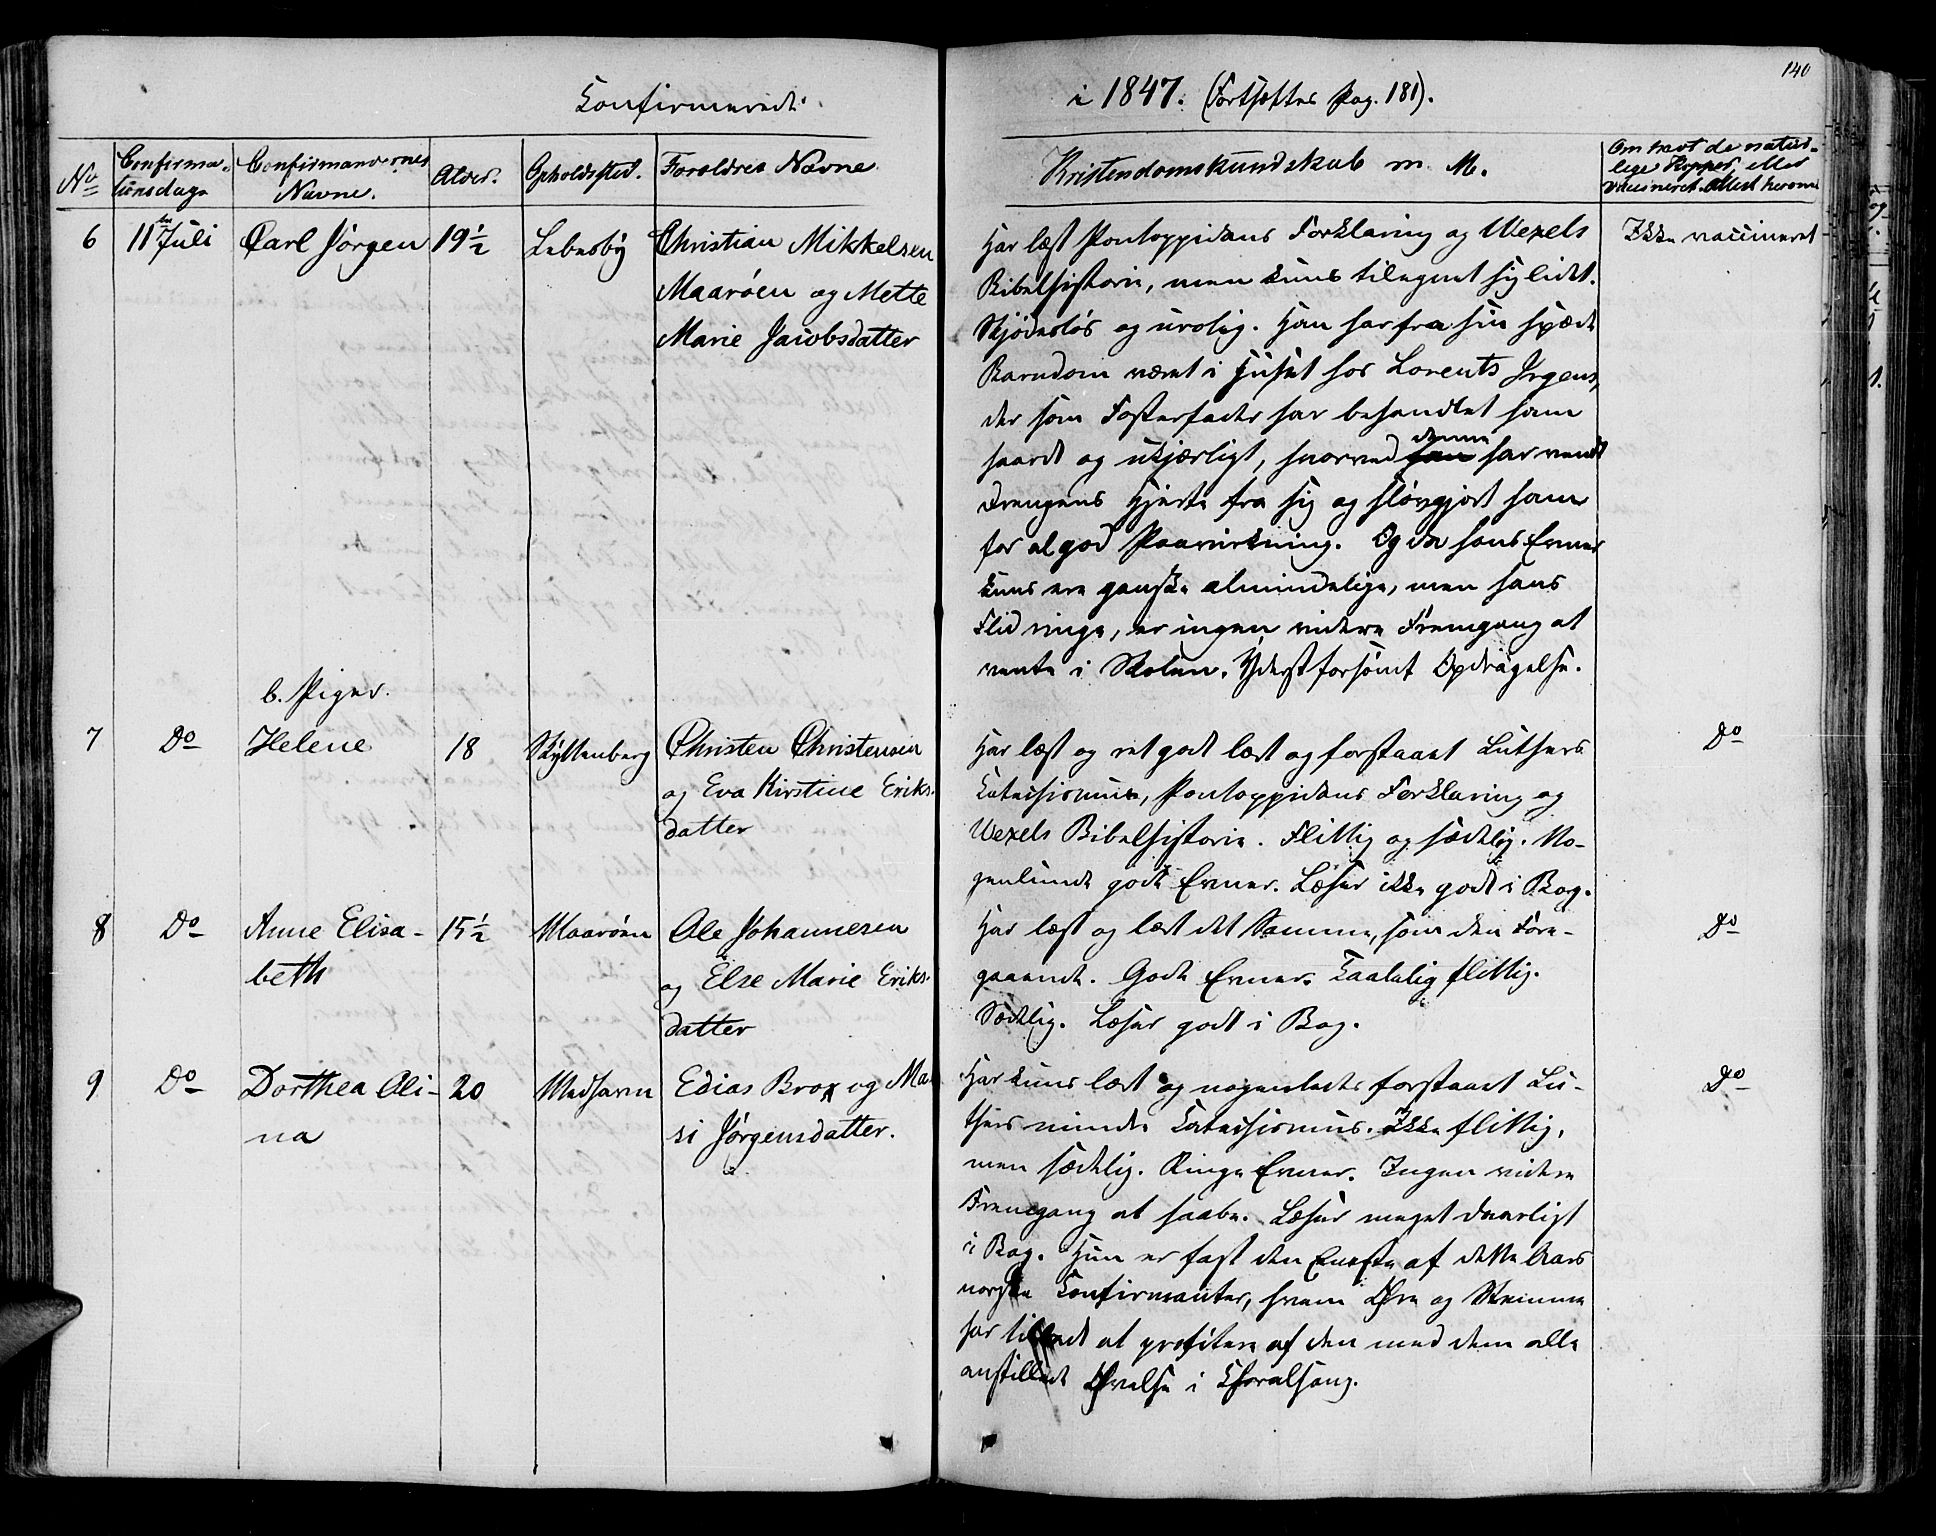 140
Confirmerede
i 1847. (Fortsættes Pag. 181).
No
Confirma-
tionsdag
Confirmandernes
Navne.
Alder.
Opholdssted.
Forældres Navne
Kristendomskundskab m. M.
Om havt de natur-
lige Kopper, eller
vaccineret. Attest herom
6
11te Juli
Carl Jörgen
19 1/2
Lebesby
Christian Mikkelsen
Maaröen og Mette
Marie Jacobsdatter
Har læst Pontoppidans Forklaring og Wexels
Bibelhistorie, men kuns tilegnet sig lidet.
Skjödeslös og urolig. Han har fra sin spæde
Barndom været i Huset hos Lorents Irgens,
der som Fosterfader har behandlet ham
haardt og ukjærligt, hvorved denne har vendt
Drengens Hjerte fra sig og slövgjort ham
for al god Paavirkning. Og da hans Evner
kuns ere ganske almindelige, men hans
Flid ringe, er ingen videre Fremgang at
vente i Skolen. Yderst forsömt Opdragelse.
Ikke vaccineret
b. Piger.
7
Do
Helene
18
Skyttenberg
Christen Christensen
og Eva Kirstine Eriks-
datter
Har læst og ret godt lært og forstaaet Luthers
Catechismus, Pontoppidans Forklaring og
Wexels Bibelhistorie. Flittig og sædelig. No-
genlunde gode Evner. Læser ikke godt i Bog.
Do
8
Do
Anne Elisa-
beth
15 1/2
Maaröen
Ole Johannesen
og Else Marie Eriks-
datter
Har læst og lært det Samme, som den Fore-
gaaende. Gode Evner. Taalelig flittig.
Sædelig. Læser godt i Bog.
Do
9
Do
Dorthea Oli-
na
20
Vedhavn
Edias Brox og Ma-
si Jørgensdatter.
Har kuns lært og nogenledes forstaaet Lu-
thers mindre Catechismus. Ikke flittig,
men sædelig. Ringe Evner. Ingen videre
Fremgang at haabe. Læser meget daarligt
i Bog. Hun er fast den Eneste af dette Aars
norske Confirmanter, hvem Øre og Stemme
har tilladt at profitere af den med dem alle
anstillede Øvelse i Choralsang.
Do